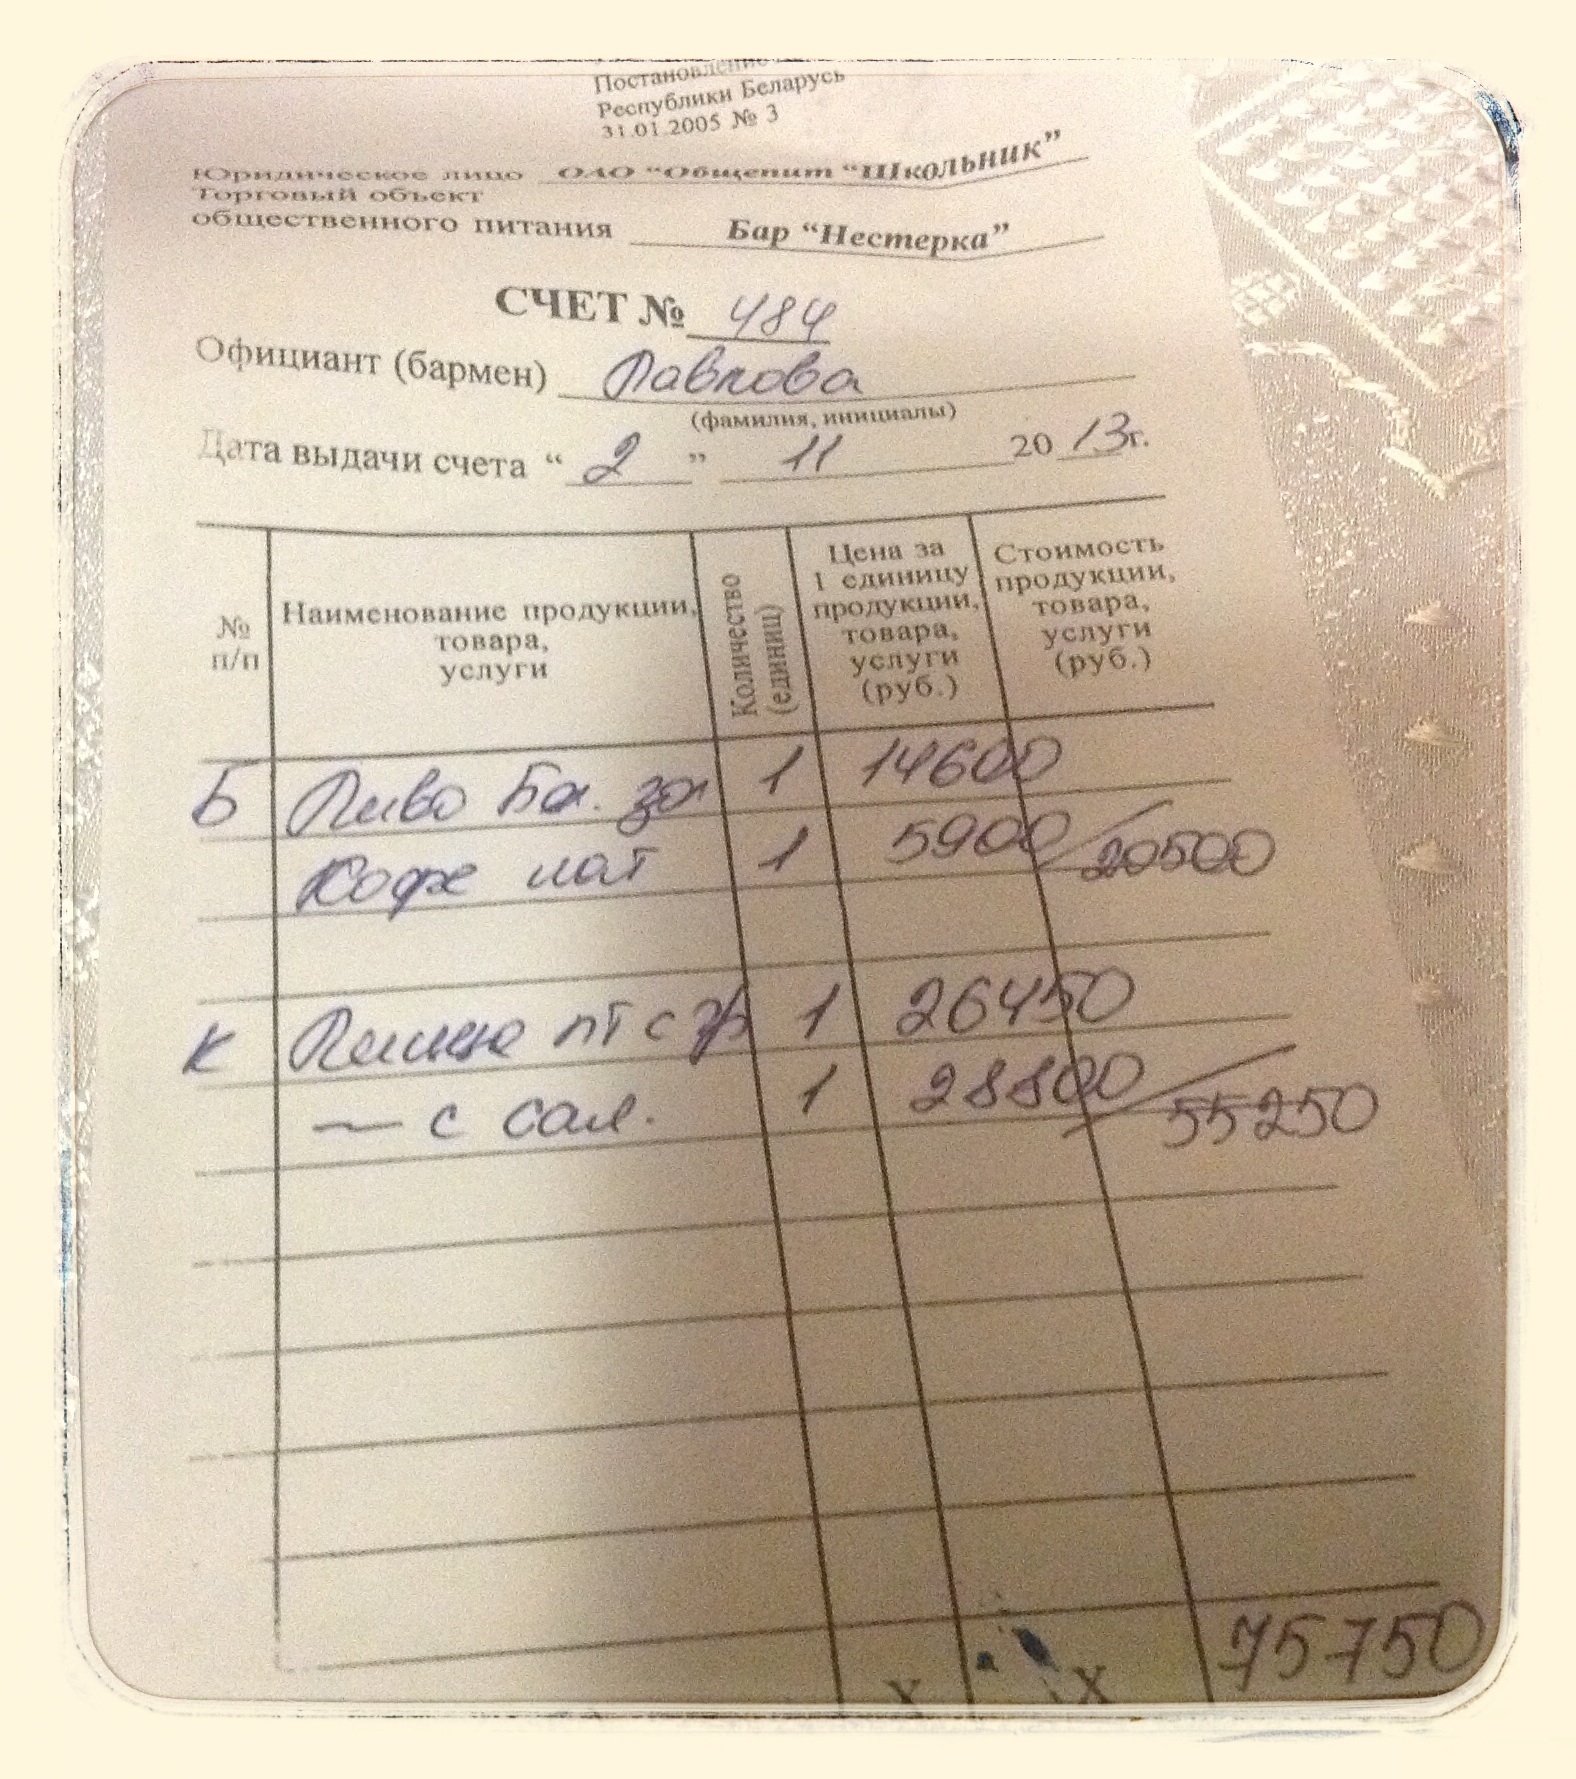 Постановление
Республики Беларусь
31.01.2005 № 3
Юридическое лицо ОАО “Общепит “Школьник”
Торговый объект
общественного питания Бар “Нестерка”
СЧЕТ № 484
Официант (бармен) Павлова
(фамилия, инициалы)
Дата выдачи счета “ 2 ” 11 20 13г.
№ п/п
Наименование продукции, товара, услуги
Количество (единиц)
Цена за 1 единицу продукции, товара, услуги (руб.)
Стоимость продукции, товара, услуги (руб.)
Б Пиво Ба. за 1 14600
Кофе лат 1 5900 20500
К Пицца пт с гр 1 26450
— с сал. 1 28800 55250
Х Х 75750